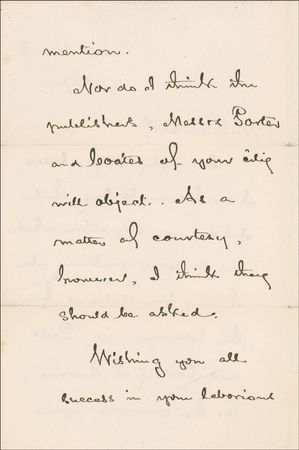 mention.
Nor do I think the
publishers, Messrs Porter
and Coates of your city
will object. As a
matter of courtesy,
however, I think they
should be asked.
Wishing you all
success in your laborious